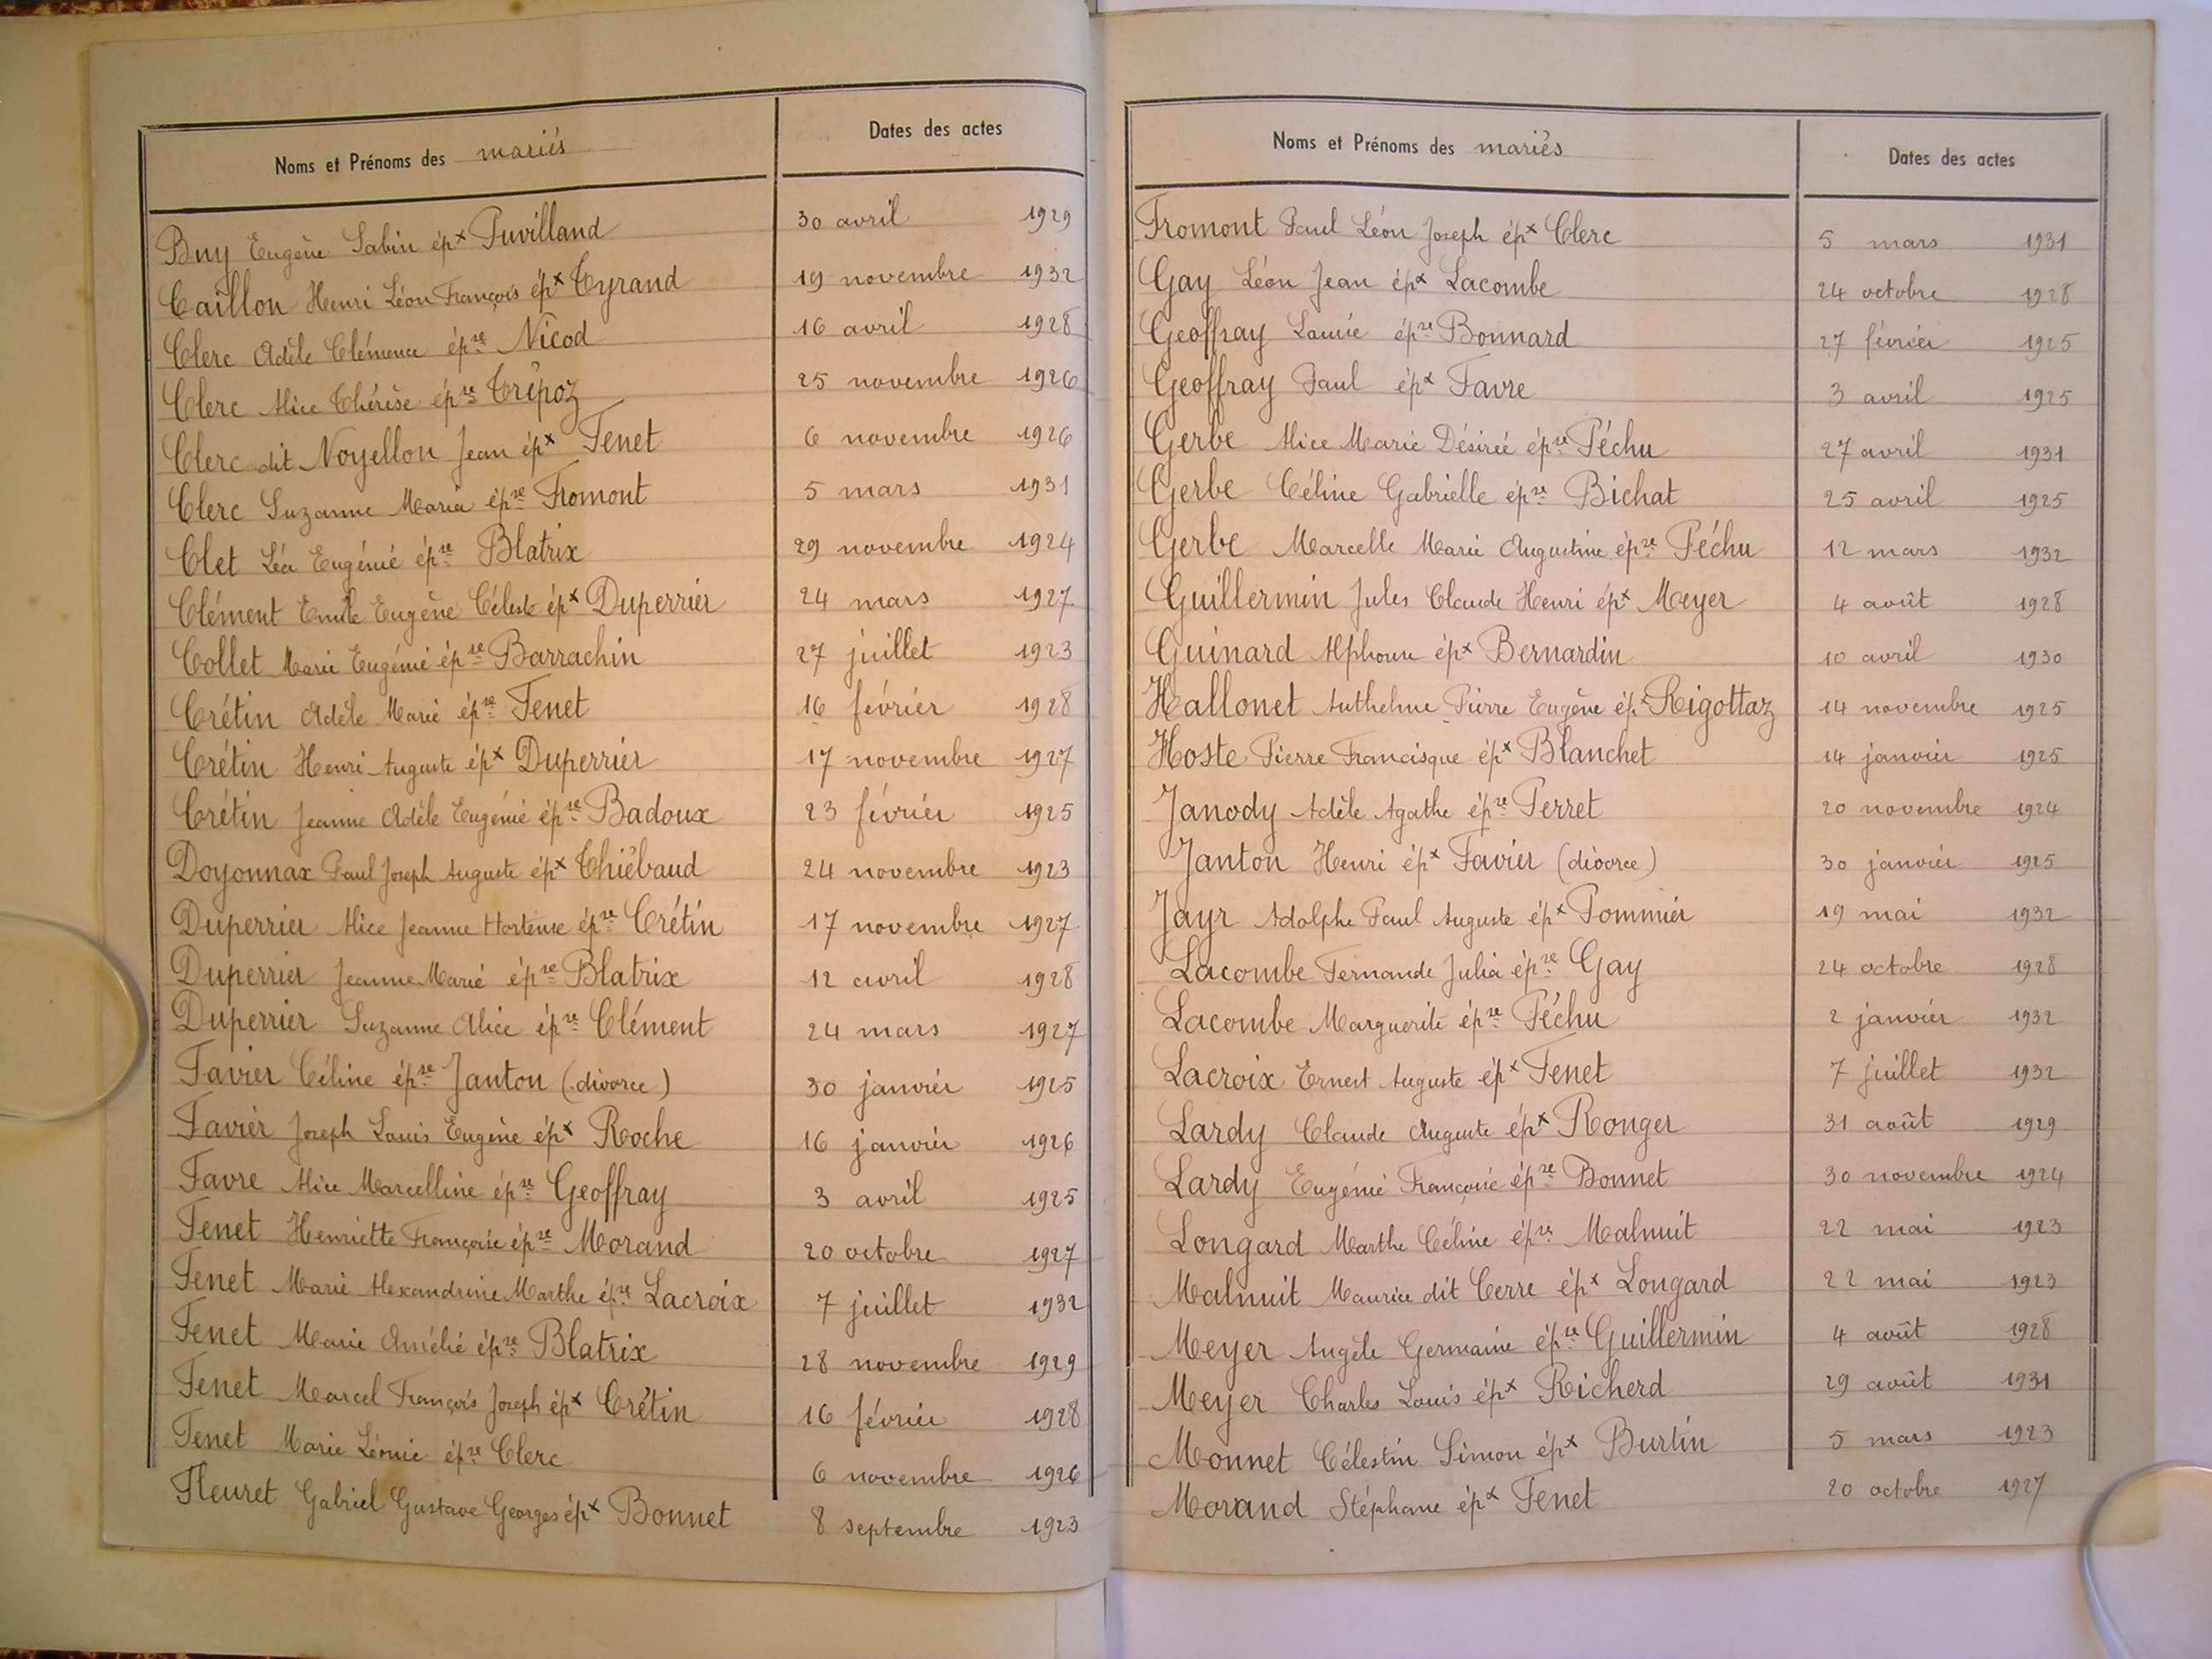 Noms et Prénoms des mariés Dates des actes
Buy Eugène Sabin épx Puvilland 30 avril 1929
Caillon Henri Léon François épx Tyrand 19 novembre 1932
Clerc Adèle Clémence épse Nicod 16 avril 1928
Clerc Alice Thérèse épse Trépoz 25 novembre 1926
Clerc dit Noyellon Jean épx Fenet 6 novembre 1926
Clerc Suzanne Maria épse Fromont 5 mars 1931
Clet Léa Eugénie épse Blatrix 29 novembre 1924
Clément Emile Eugène Céleste épx Duperrier 24 mars 1927
Collet Marie Eugénie épse Barrachin 27 juillet 1923
Crétin Adèle Marie épse Fenet 16 février 1928
Crétin Henri Auguste épx Duperrier 17 novembre 1927
Crétin Jeanne Adèle Eugénie épse Badoux 23 février 1925
Doyonnax Paul Joseph Auguste épx Thiébaud 24 novembre 1923
Duperrier Alice Jeanne Hortense épse Crétin 17 novembre 1927
Duperrier Jeanne Marie épse Blatrix 12 avril 1928
Duperrier Suzanne Alice épse Clément 24 mars 1927
Favier Céline épse Janton (divorce) 30 janvier 1925
Favier Joseph Louis Eugène épx Roche 16 janvier 1926
Favre Alice Marcelline épse Geoffray 3 avril 1925
Fenet Henriette Françoise épse Morand 20 octobre 1927
Fenet Marie Alexandrine Marthe épse Lacroix 7 juillet 1932
Fenet Marie Amélie épse Blatrix 28 novembre 1929
Fenet Marcel François Joseph épx Crétin 16 février 1928
Fenet Marie Léonie épse Clerc 6 novembre 1926
Fleuret Gabriel Gustave Georges épx Bonnet 8 septembre 1923
Noms et Prénoms des mariés Dates des actes
Fromont Paul Léon Joseph épx Clerc 5 mars 1931
Gay Léon Jean épx Lacombe 24 octobre 1928
Geoffray Laurie épse Bonnard 27 février 1925
Geoffray Paul épx Favre 3 avril 1925
Gerbe Alice Marie Désirée épse Péchu 27 avril 1931
Gerbe Céline Gabrielle épse Bichat 25 avril 1925
Gerbe Marcelle Marie Augustine épse Péchu 12 mars 1932
Guillermin Jules Claude Henri épx Meyer 4 août 1928
Guinard Alphonse épx Bernardin 10 avril 1930
Hallonet Anthelme Pierre Eugène épx Rigottaz 14 novembre 1925
Hoste Pierre Francisque épx Blanchet 14 janvier 1925
Janody Adèle Agathe épse Perret 20 novembre 1924
Janton Henri épx Favier (divorce) 30 janvier 1925
Jayr Adolphe Paul Auguste épx Pommier 19 mai 1932
Lacombe Fernande Julia épse Gay 24 octobre 1928
Lacombe Marguerite épse Péchu 2 janvier 1932
Lacroix Ernest Auguste épx Fenet 7 juillet 1932
Lardy Claude Auguste épx Ronger 31 août 1929
Lardy Eugénie Françoise épse Bonnet 30 novembre 1924
Longard Marthe Céline épse Malnuit 22 mai 1923
Malnuit Maurice dit Cerre épx Longard 22 mai 1923
Meyer Angèle Germaine épse Guillermin 4 août 1928
Meyer Charles Louis épx Richerd 29 août 1931
Monnet Célestin Simon épx Burtin 5 mars 1923
Morand Stéphane épx Fenet 20 octobre 1927